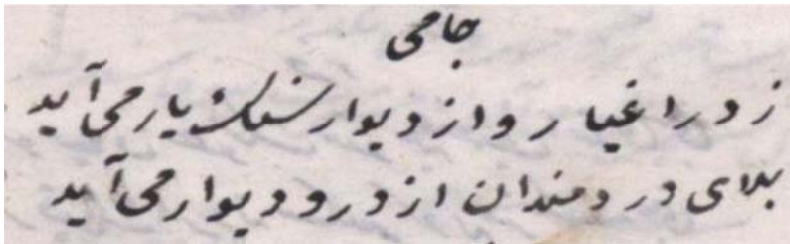 جامی
ز در اغیار و از دیوار سنگ یار می آید
بلای دردمندان از در و دیوار می آید